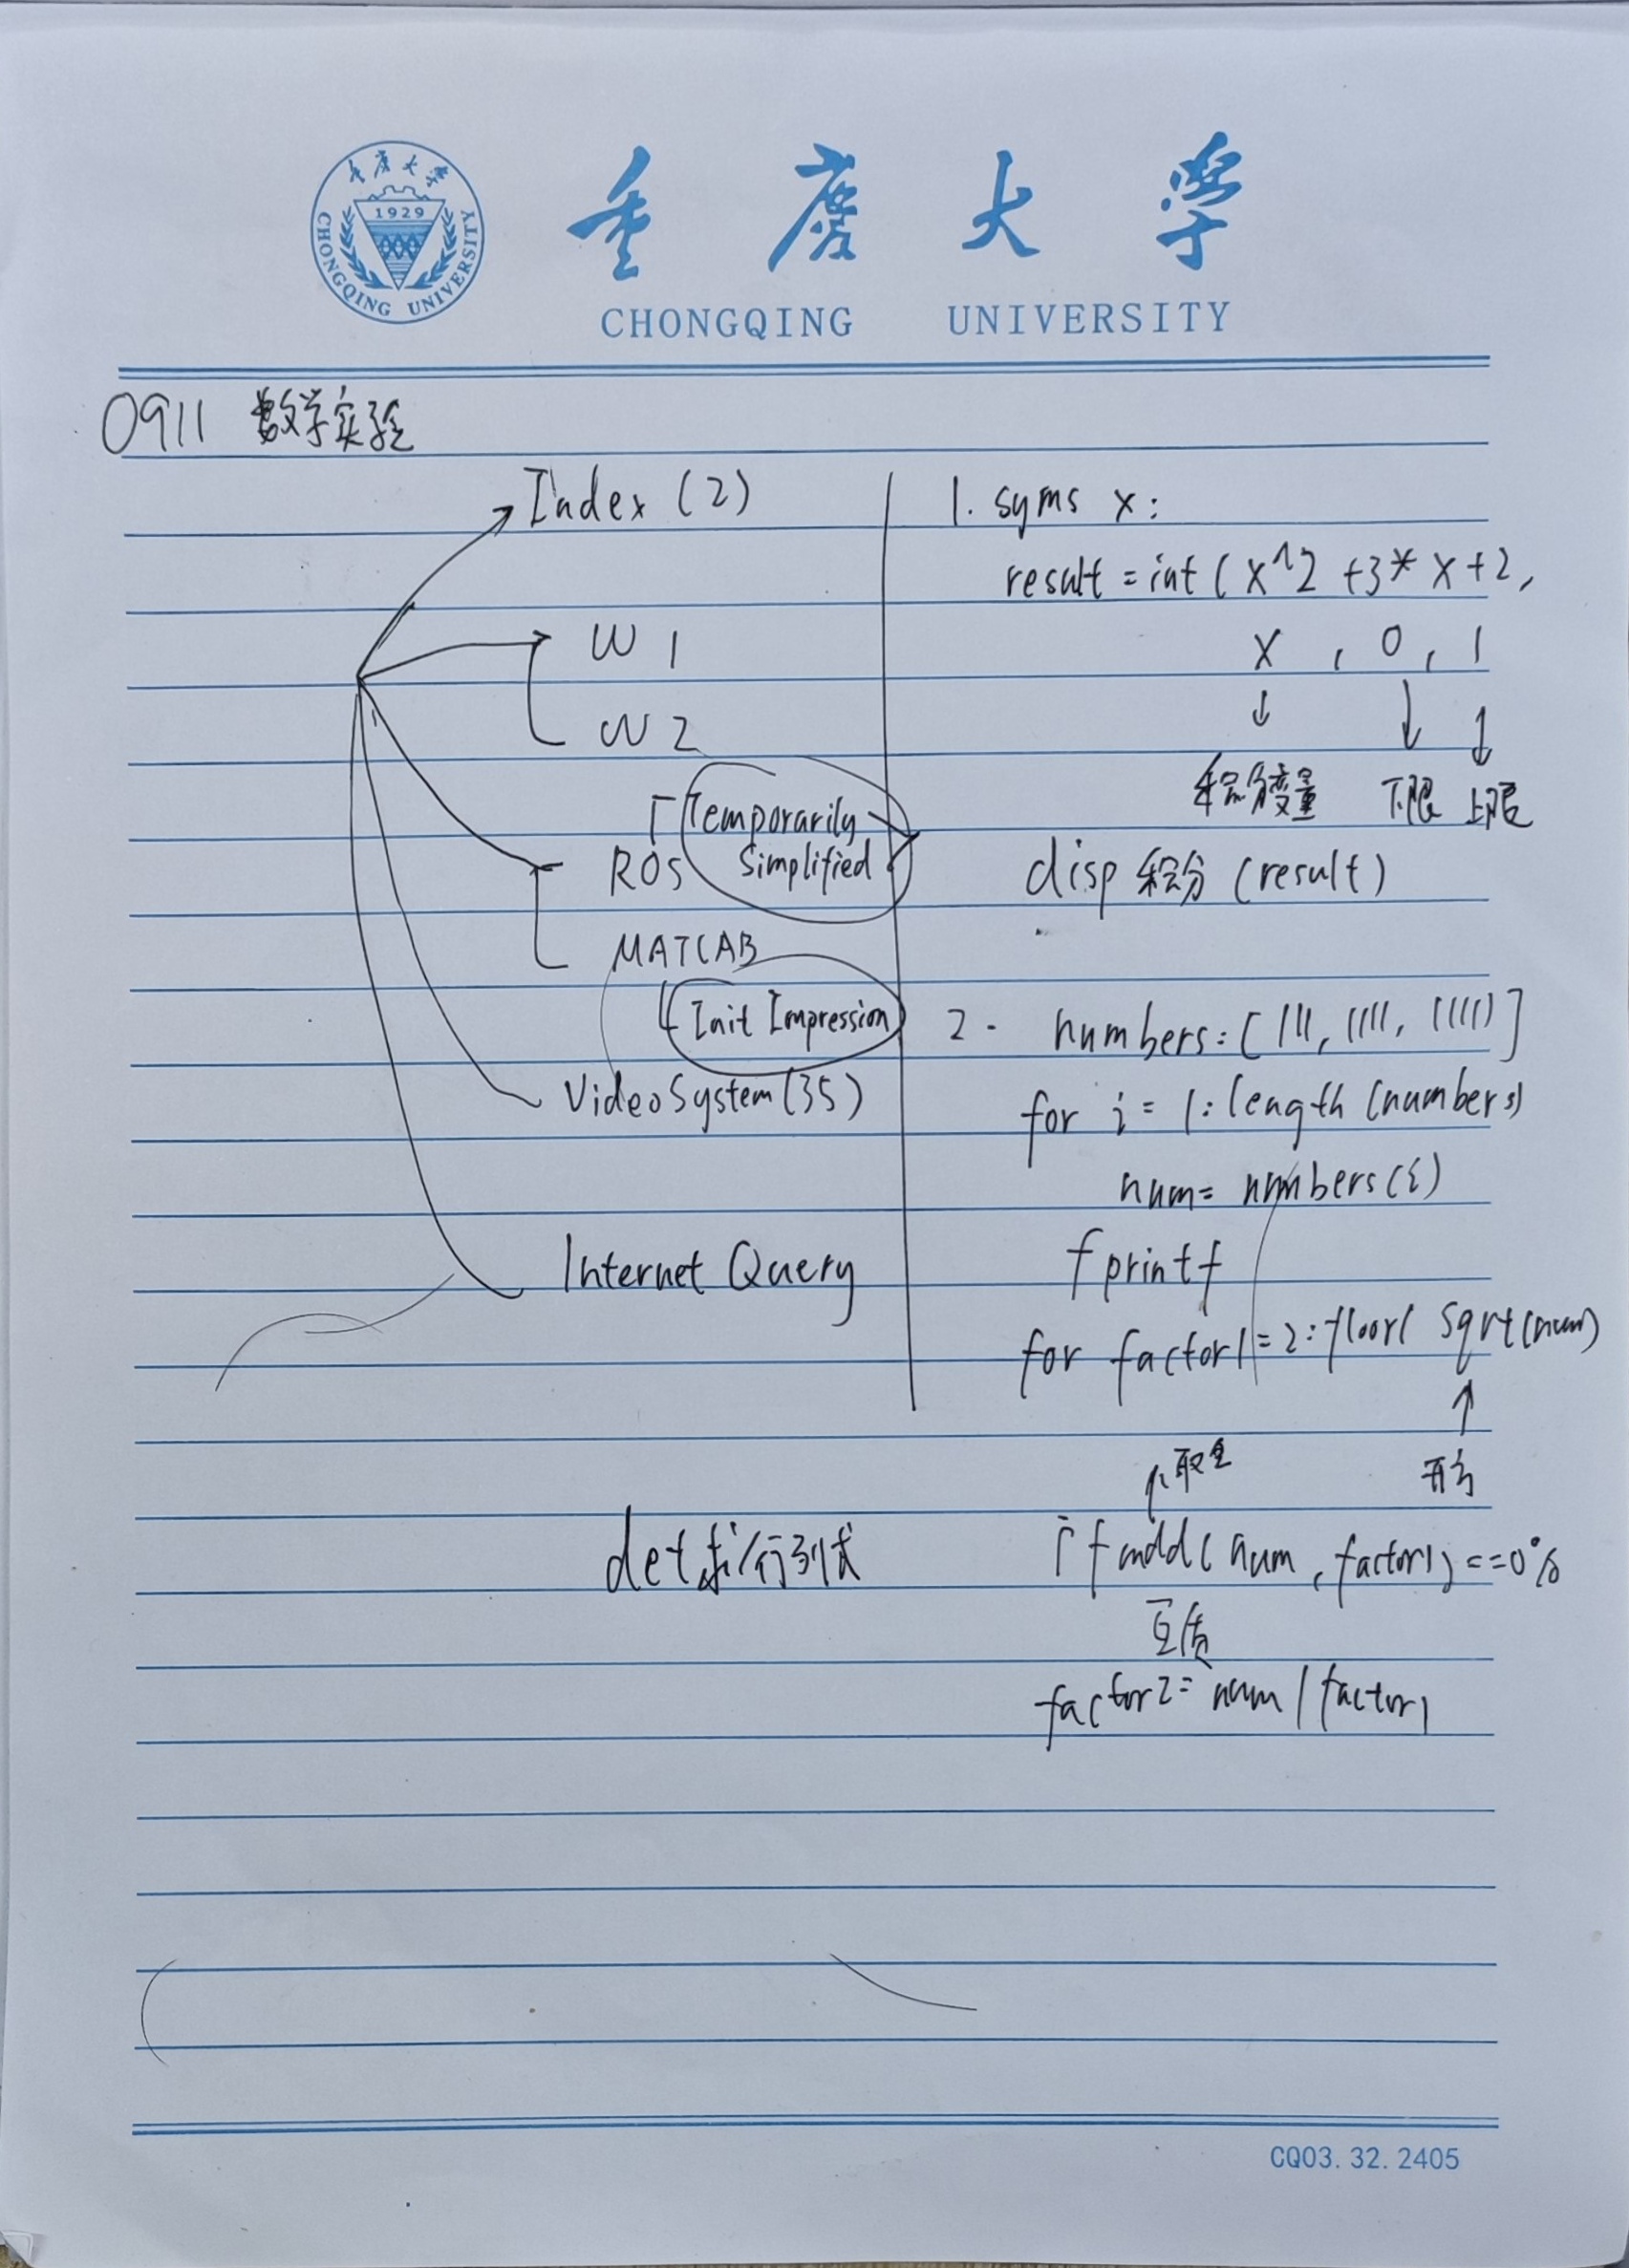 重庆大学
1929
CHONGQING UNIVERSITY
重庆大学
CHONGQING UNIVERSITY
0911 数学实验
Index (2)
W 1
W 2
Temporarily
ROS Simplified
MATLAB
Init Impression
VideoSystem (35)
Internet Query
det求行列式
1. syms x:
result = int ( x^2 +3* x+2,
x , 0 , 1
积分变量 下限 上限
disp 积分 (result)
2. numbers = [ 111, 1111, 11111 ]
for i = 1: length (numbers)
num = numbers(i)
fprintf
for factor1 = 2: floor( sqrt(num)
取全 开方
if mdd( num , factor1) ==0%
互质
factor2 = num / factor1
CQ03.32.2405